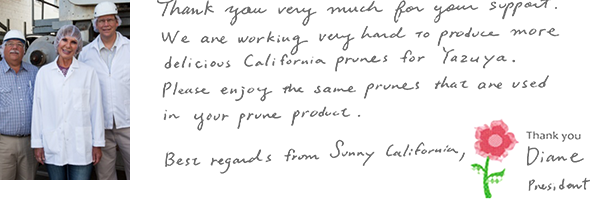 Thank you very much for your support.
We are working very hard to produce more
delicious California prunes for Yazuya.
Please enjoy the same prunes that are used
in your prune product.
Best regards from Sunny California,
Thank you
Diane
President